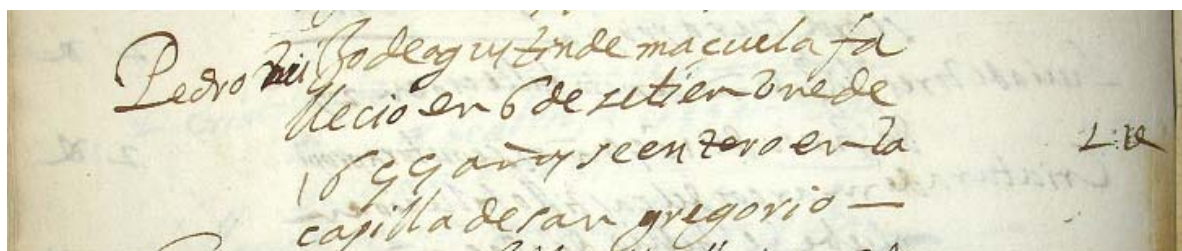 Pedro hijo de agustin de maçuela fa
llecio en 6 de setienbre de
1699 años se enterro en la
capilla de san gregorio —